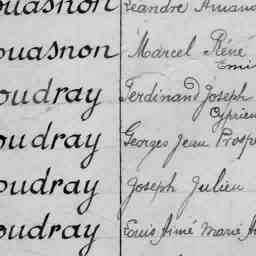 ouasnon Léandre Amand
ouasnon Marcel Réné
Emil
oudray Ferdinand Joseph
Cyprien
oudray Georges Jean Prosp
oudray Joseph Julien
oudray Louis Aimé Marie A